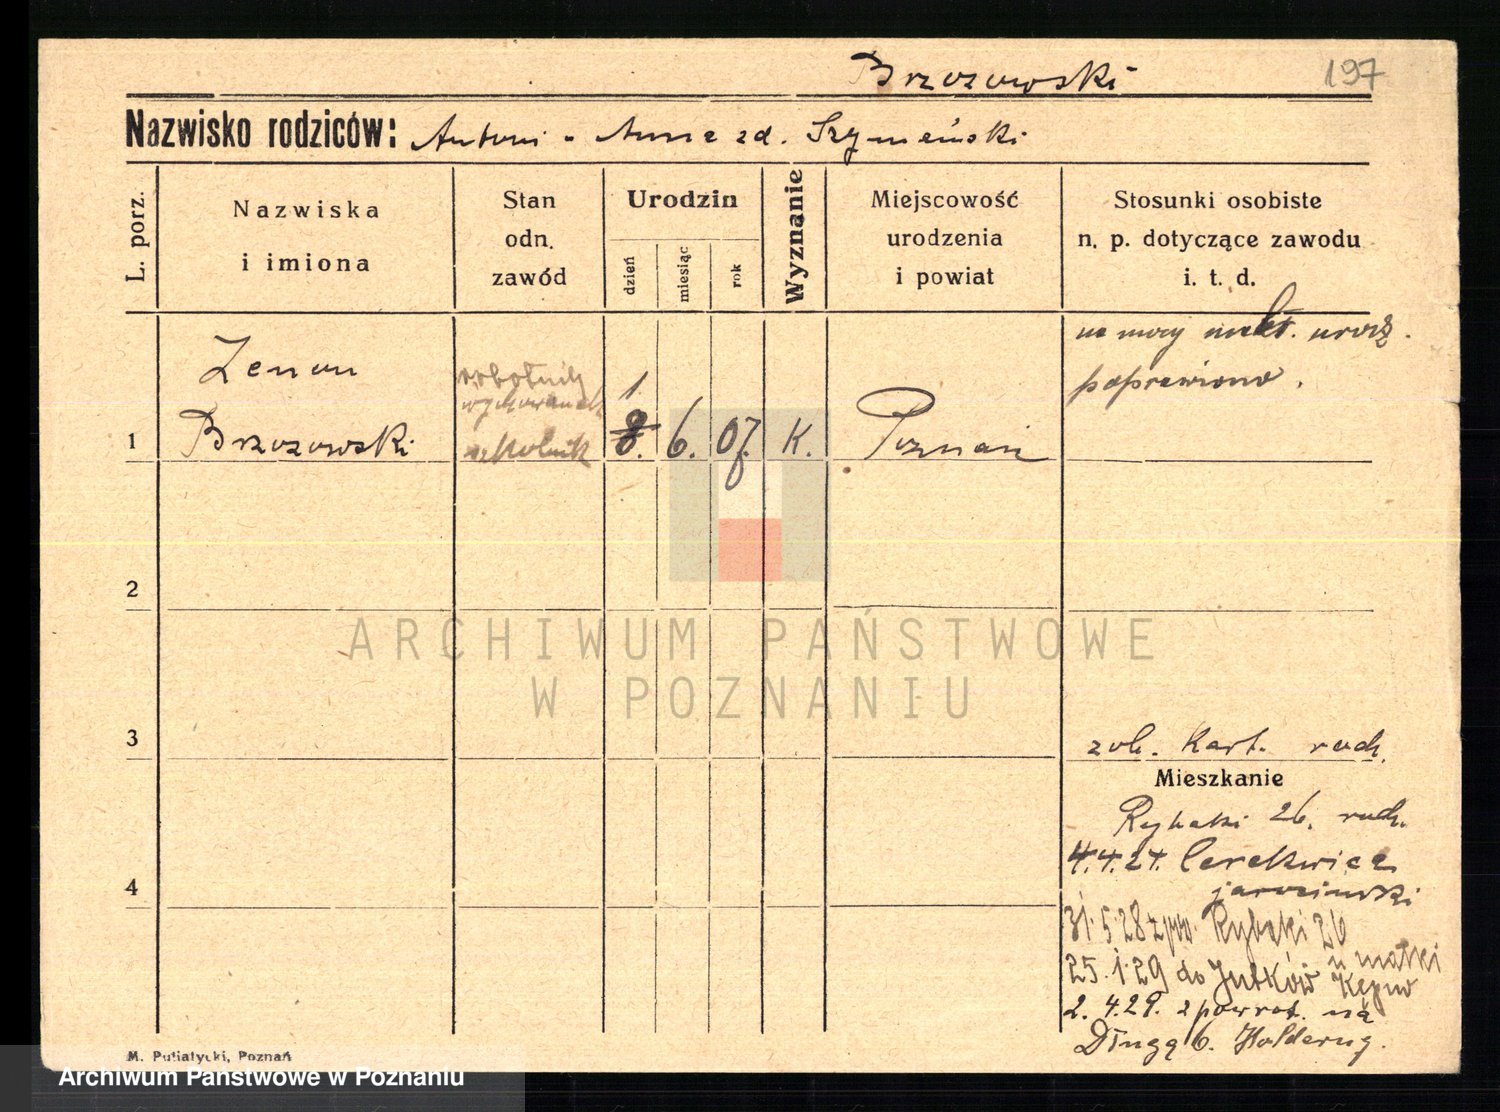 Brzozowski
197
Nazwisko rodziców: Antoni - Anna zd. Szymański
L. porz.
Nazwiska
i imiona
Stan
odn.
zawód
Urodzin
dzień
miesiąc
rok
Wyznanie
Miejscowość
urodzenia
i powiat
Stosunki osobiste
n. p. dotyczące zawodu
i. t. d.
na mocy urodz.
poprawiono.
Zenon
robotnik
1
1 Brzozowski szkolnik 8. 6. 07. K. Poznań
2
ARCHIWUM PAŃSTWOWE
W POZNANIU
3
zob. Kart. rodz.
Mieszkanie
Rybaki 26. rodz.
4.4.27. Cerekwica
4
jarociński
31.5.28 z pow. Rybaki 26
u matki
25.1.29 do Kępno
2. 4.29. z powrot. na
Długą 6.
M. Putiatycki, Poznań
Archiwum Państwowe w Poznaniu